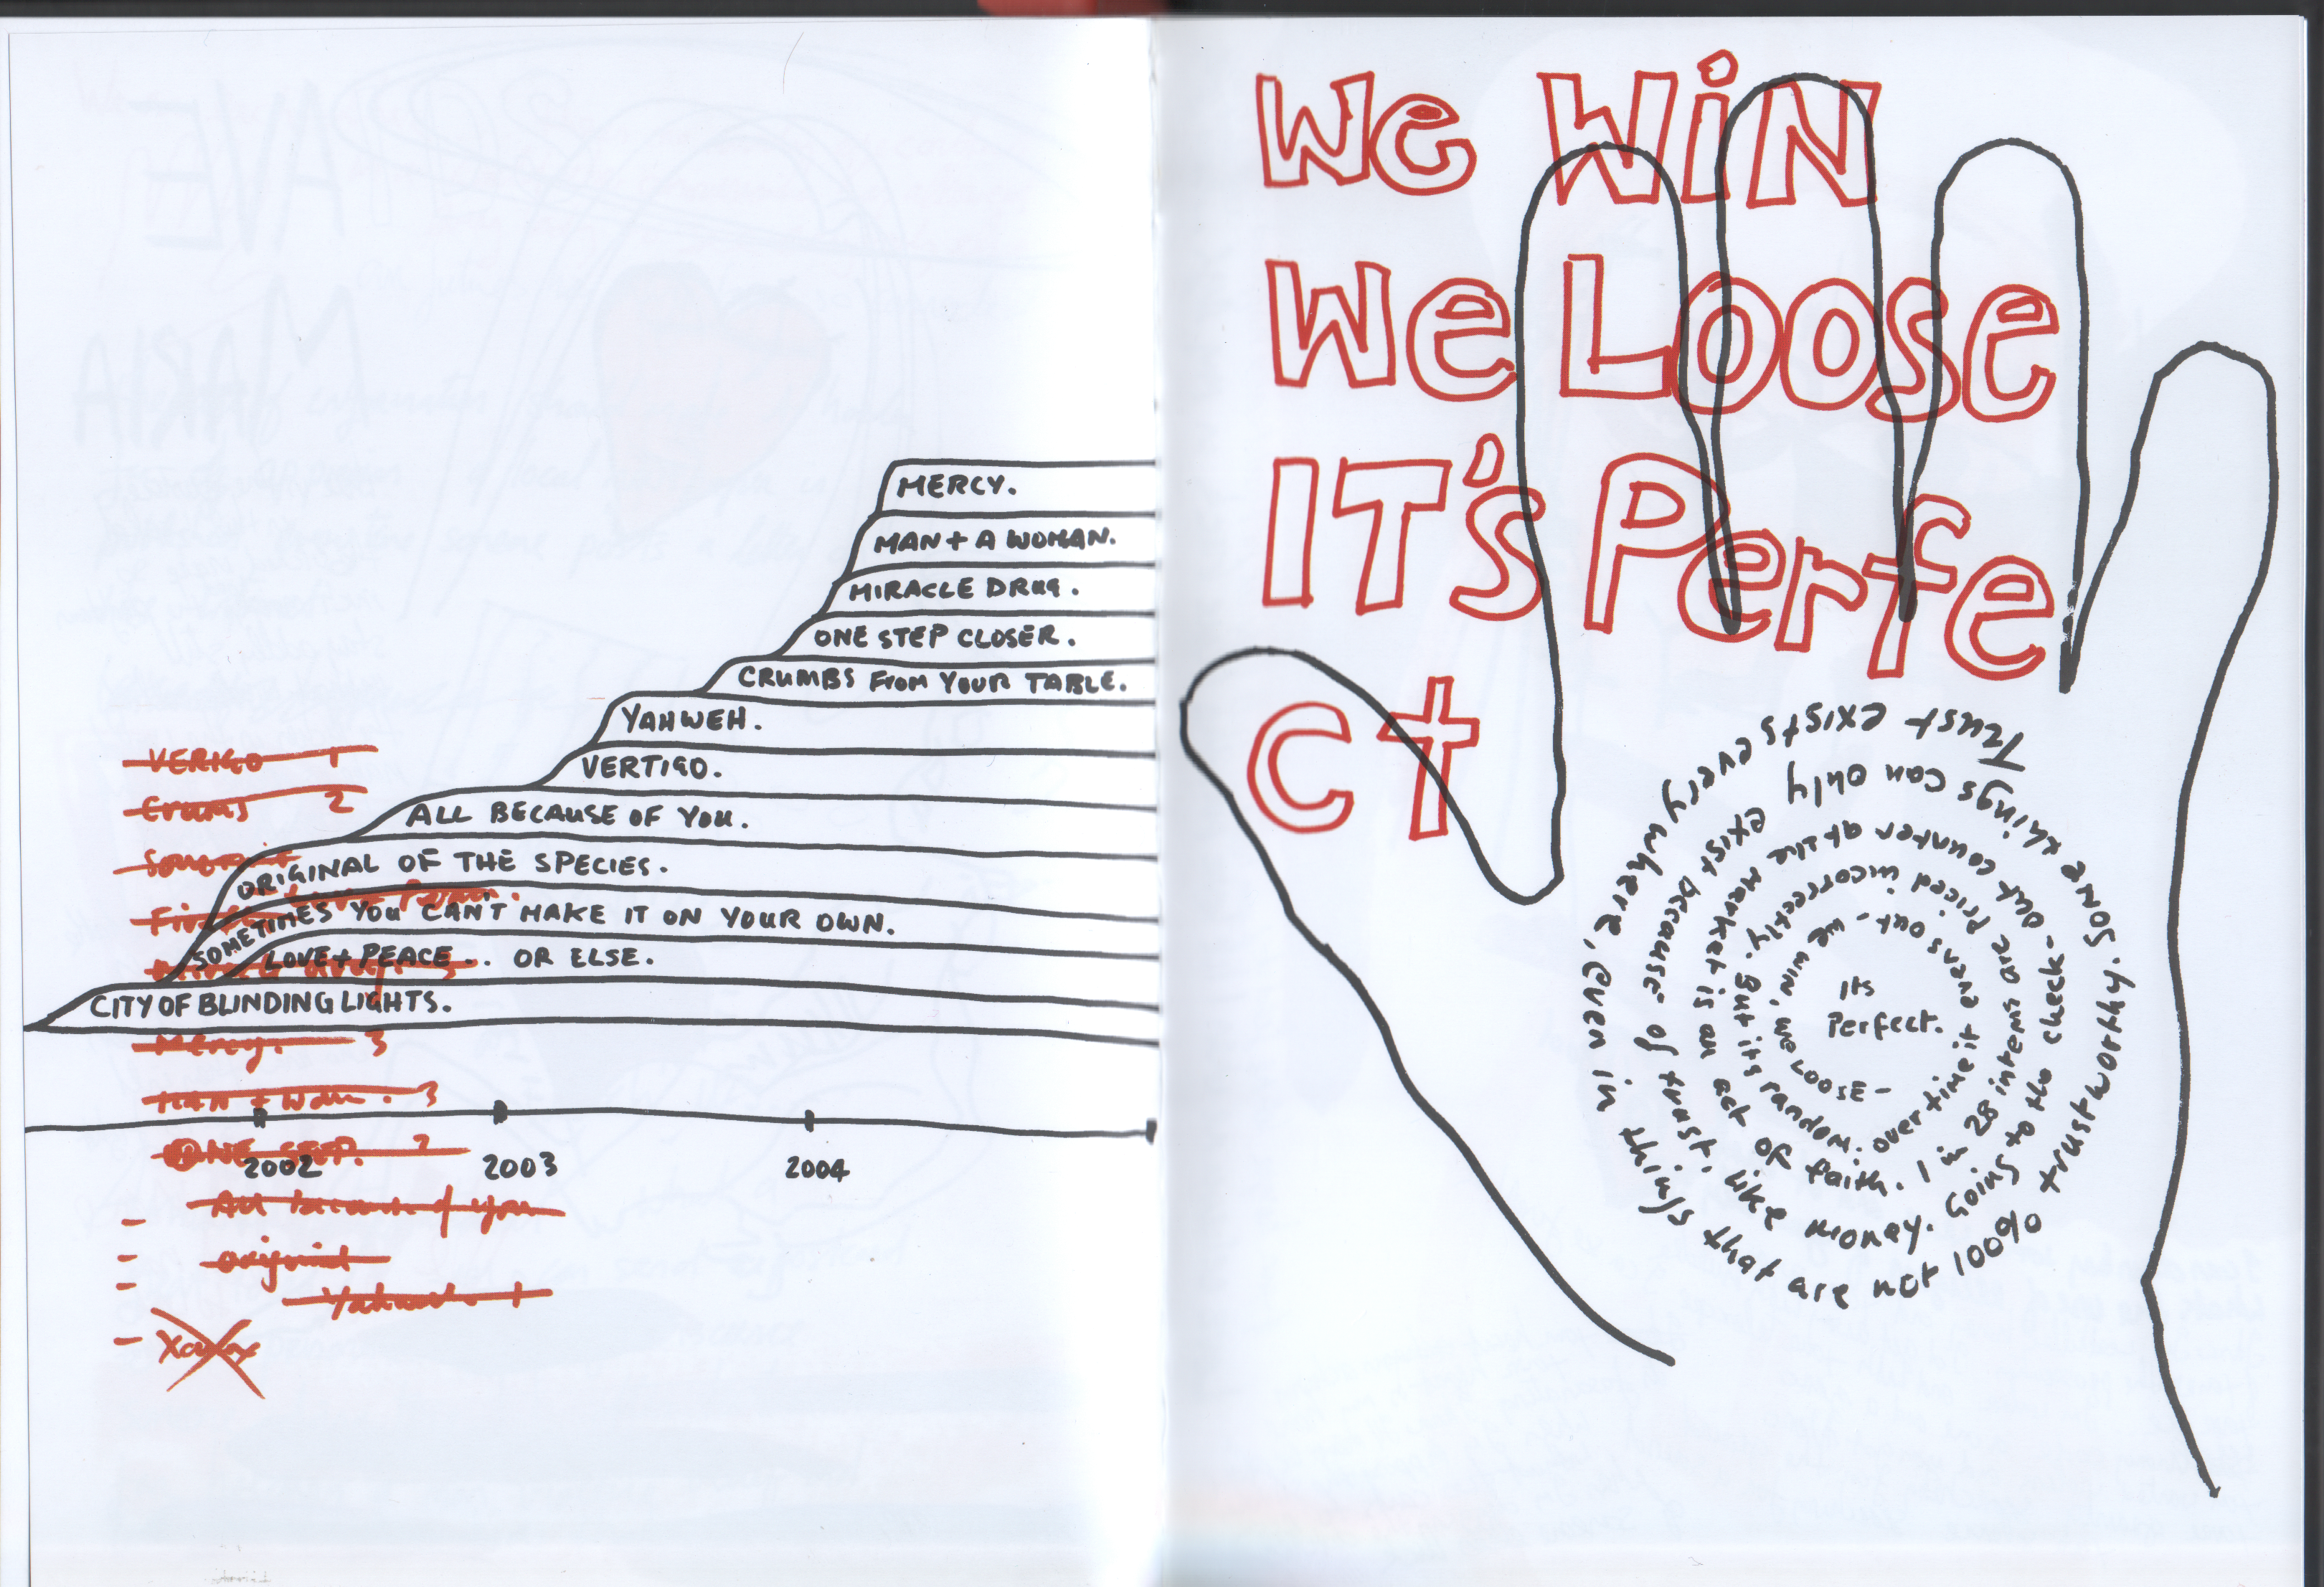 MERCY.
MAN + A WOMAN.
MIRACLE DRUG.
ONE STEP CLOSER.
CRUMBS FROM YOUR TABLE.
YAHWEH.
VERTIGO.
ALL BECAUSE OF YOU.
ORIGINAL OF THE SPECIES.
SOMETIMES YOU CAN'T MAKE IT ON YOUR OWN.
LOVE + PEACE.. OR ELSE.
CITY OF BLINDING LIGHTS.
VERIGO 1
Crums 2
Mercy. 3
MAN + Wom. 3
ONE STEP. 2
2002 2003 2004
All because of you
original
Yahweh 1
We WiN
We Loose
IT's Perfe
ct
Trust exists every where, even in things that are not 100% trustworthy. Some things can only exist because of trust. like money. Going to the check-out counter at the Market is an act of faith. 1 in 28 intems are priced incorrectly. But its random. over time it evens out - we win, we LOOSE -
Its
Perfect.